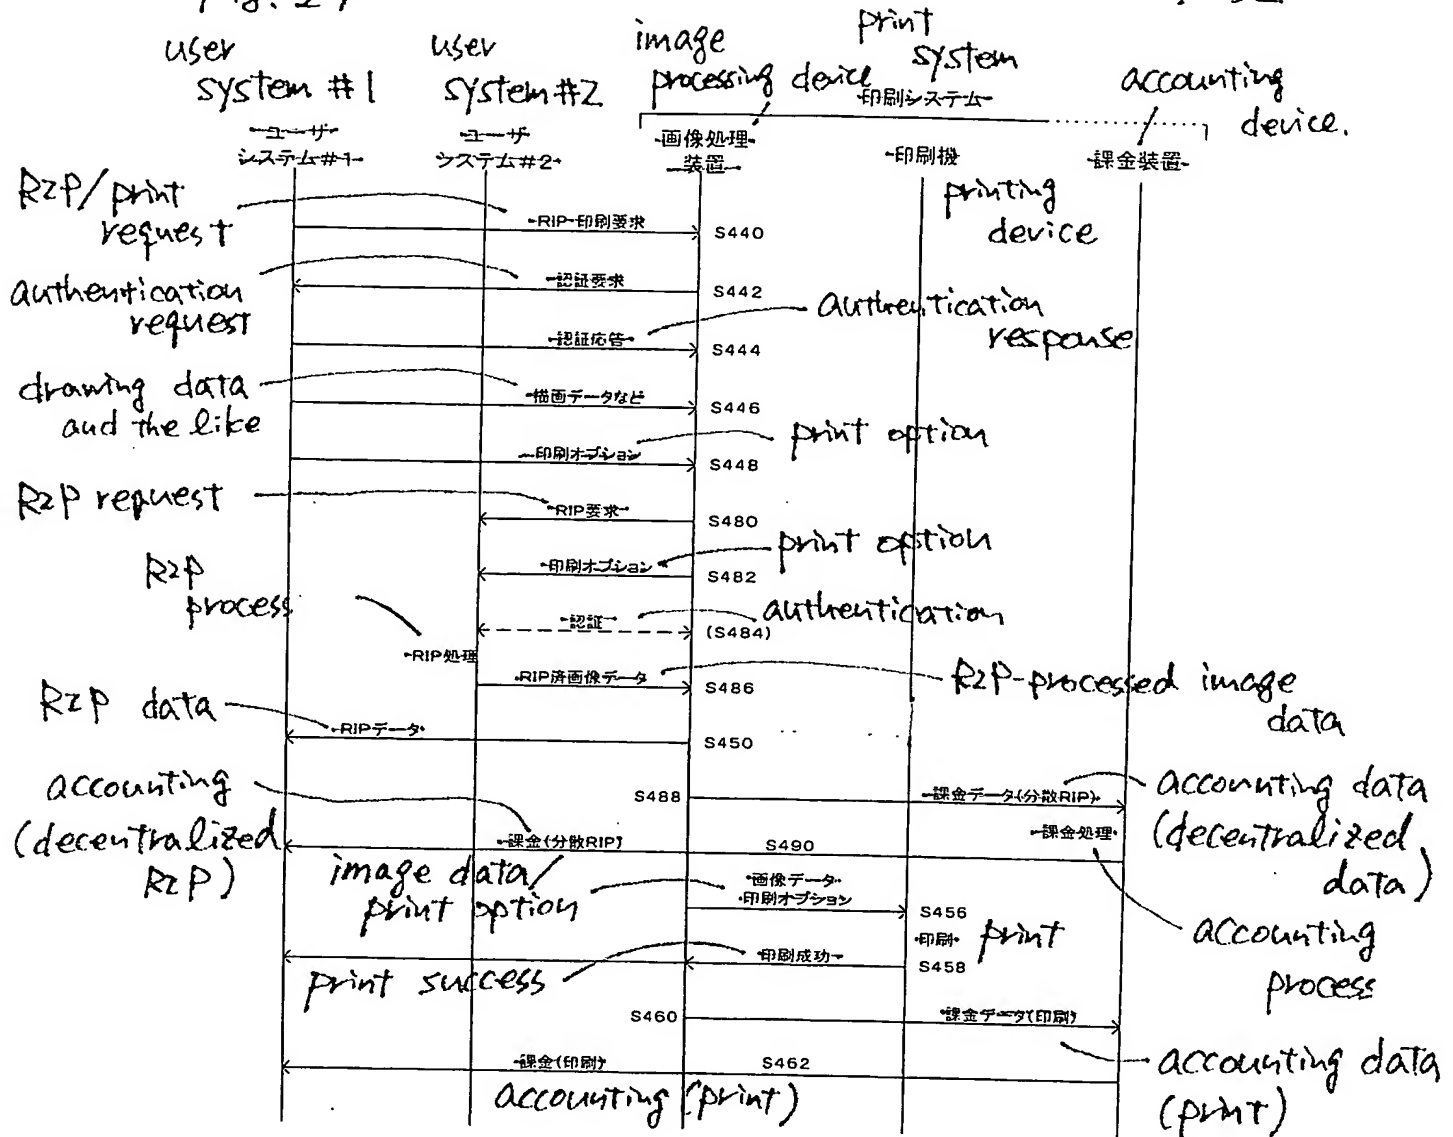 user
system #1
user
system #2
image
processing device
print
system
accounting
device.
印刷システム
ユーザ
システム#1
ユーザ
システム#2
画像処理
装置
印刷機
課金装置
printing
device
RIP/print
request
RIP印刷要求
S440
authentication
request
認証要求
S442
authentication
response
認証応答
S444
drawing data
and the like
描画データなど
S446
print option
印刷オプション
S448
RIP request
RIP要求
S480
print option
印刷オプション
S482
RIP
process
authentication
認証
(S484)
RIP処理
RIP済画像データ
S486
RIP-processed image
data
RIP data
RIPデータ
S450
accounting
(decentralized
RIP)
S488
課金データ(分散RIP)
accounting data
(decentralized
data)
課金処理
課金(分散RIP)
S490
image data/
print option
画像データ
印刷オプション
S456
印刷
print
accounting
process
print success
印刷成功
S458
S460
課金データ(印刷)
accounting data
(print)
課金(印刷)
S462
accounting (print)